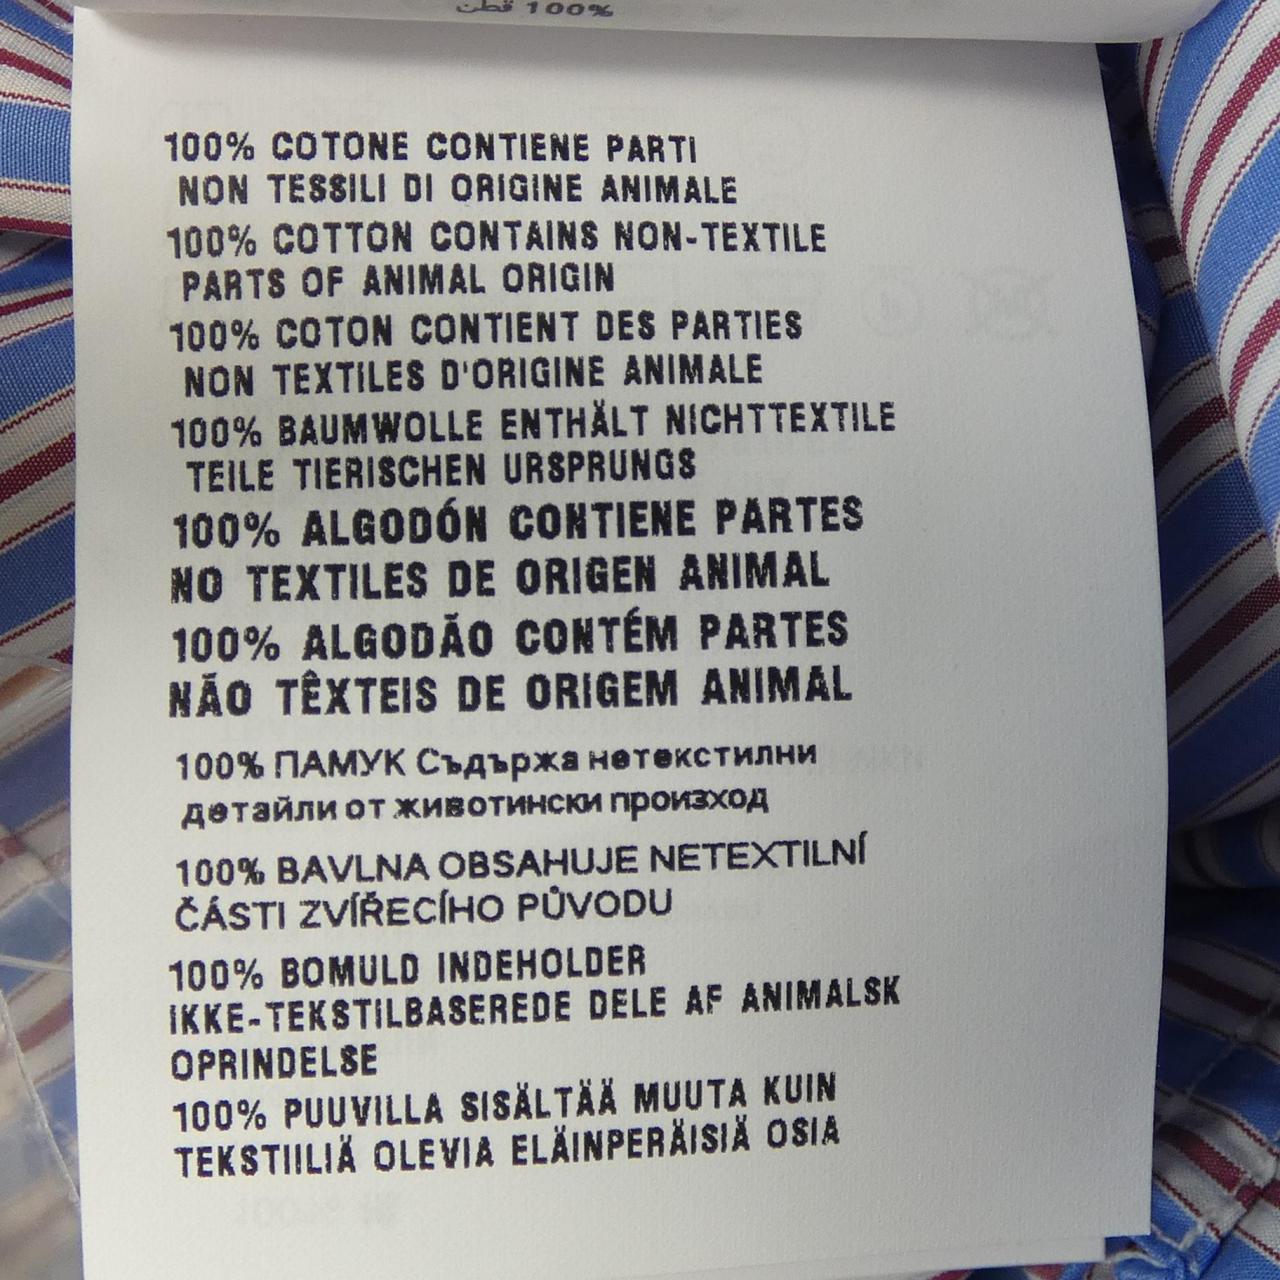 100% قطن
100% COTONE CONTIENE PARTI
NON TESSILI DI ORIGINE ANIMALE
100% COTTON CONTAINS NON-TEXTILE
PARTS OF ANIMAL ORIGIN
100% COTON CONTIENT DES PARTIES
NON TEXTILES D'ORIGINE ANIMALE
100% BAUMWOLLE ENTHÄLT NICHTTEXTILE
TEILE TIERISCHEN URSPRUNGS
100% ALGODÓN CONTIENE PARTES
NO TEXTILES DE ORIGEN ANIMAL
100% ALGODÃO CONTÉM PARTES
NÃO TÊXTEIS DE ORIGEM ANIMAL
100% ПАМУК Съдържа нетекстилни
детайли от животински произход
100% BAVLNA OBSAHUJE NETEXTILNÍ
ČÁSTI ZVÍŘECÍHO PŮVODU
100% BOMULD INDEHOLDER
IKKE-TEKSTILBASEREDE DELE AF ANIMALSK
OPRINDELSE
100% PUUVILLA SISÄLTÄÄ MUUTA KUIN
TEKSTIILIÄ OLEVIA ELÄINPERÄISIÄ OSIA